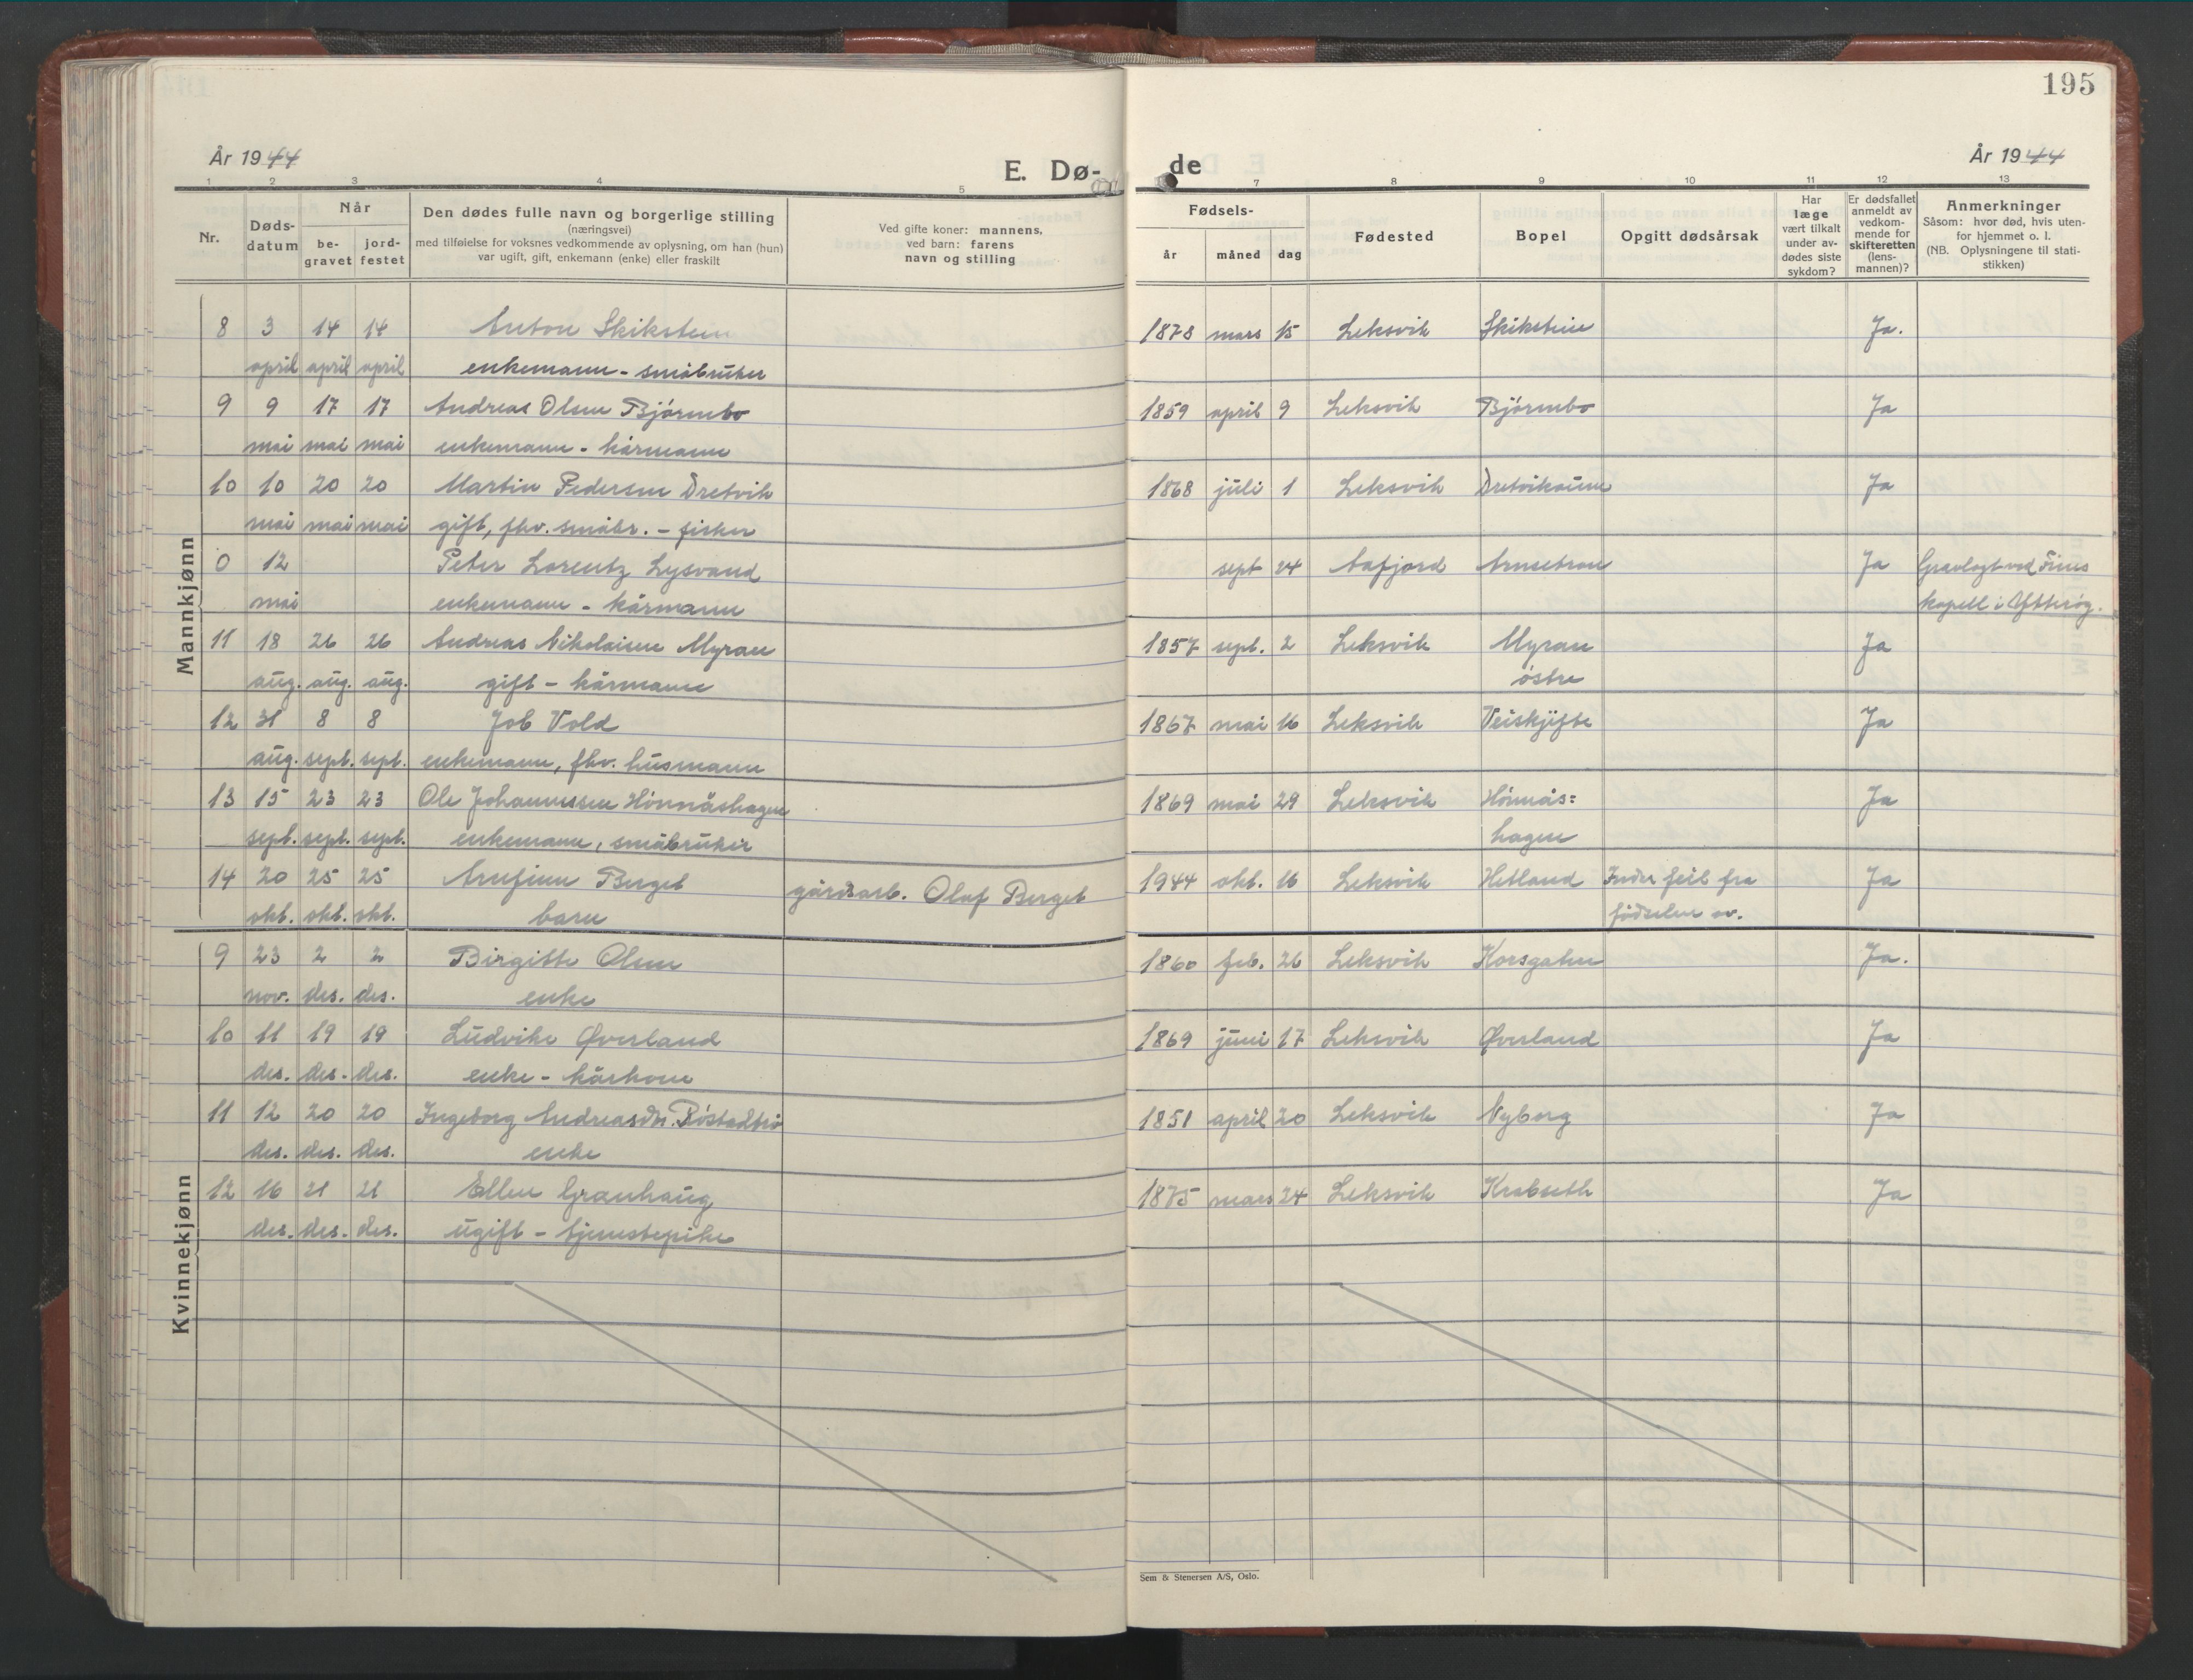 195
År 1944
E. Dø-
de
År 1944
1 2 3 4 5 7 8 9 10 11 12 13
Nr.
Døds-
datum
Når
be-
gravet
jord-
festet
Den dødes fulle navn og borgerlige stilling
(næringsvei)
med tilføielse for voksnes vedkommende av oplysning, om han (hun)
var ugift, gift, enkemann (enke) eller fraskilt
Ved gifte koner: mannens,
ved barn: farens
navn og stilling
Fødsels-
år måned dag
Fødested
Bopel
Opgitt dødsårsak
Har
læge
vært tilkalt
under av-
dødes siste
sykdom?
Er dødsfallet
anmeldt av
vedkom-
mende for
skifteretten
(lens-
mannen)?
Anmerkninger
Såsom: hvor død, hvis uten-
for hjemmet o. l.
(NB. Oplysningene til stati-
stikken)
Mannkjønn
8 3 14 14 Anton Skikstein 1878 mars 15 Leksvik Skikstein Ja.
april april april enkemann - småbruker
9 9 17 17 Andreas Olsen Bjørnbo 1859 april 9 Leksvik Bjørnbo Ja
mai mai mai enkemann - kårmann
10 10 20 20 Martin Pedersen Dretvik 1868 juli 1 Leksvik Ja
mai mai mai gift, fhv. småbr. - fisker
0 12 Peter Lorentz Lysvand sept 24 Aafjord Ja Gravlagt ved
mai enkemann - kårmann kapell i Ytterøy.
11 18 26 26 Andreas Nikolaisen Myran 1857 sept. 2 Leksvik Myran Ja
aug. aug. aug. gift - kårmann østre
12 31 8 8 Job Vold 1867 mai 16 Leksvik Veiskjifte Ja
aug. sept. sept. enkemann, fhv. husmann
13 15 23 23 Ole Johannessen Hönnåshagen 1869 mai 29 Leksvik Hönnås=
Ja
sept. sept. sept. enkemann, småbruker hagen
14 20 25 25 Arnfinn Berget gårdsarb. Olaf Berget 1944 okt. 16 Leksvik Hetland Indre feil fra Ja
okt. okt. okt. barn fødselen av.
Kvinnekjønn
9 23 2 2 Birgitte Olsen 1860 feb. 26 Leksvik Korsgaten Ja.
nov. des. des. enke
10 11 19 19 Ludvike Øverland 1869 juni 17 Leksvik Øverland Ja
des. des. des. enke - kårkone
11 12 20 20 Ingeborg Andreasdr. 1851 april 20 Leksvik Nyborg Ja
des. des. des. enke
12 16 21 21 Ellen Granhaug 1875 mars 24 Leksvik Krabseth Ja
des. des. des. ugift - tjenestepike
Sem & Stenersen A/S, Oslo.